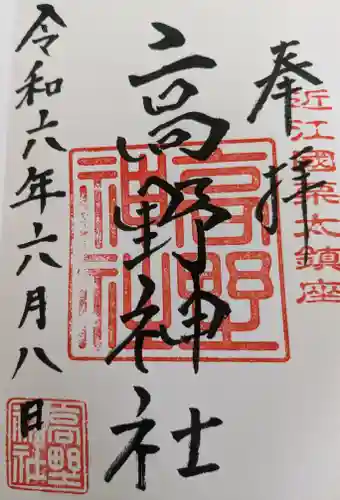 奉拝
近江國栗太鎮座
高野神社
高野神社
令和六年六月八日
高野神社